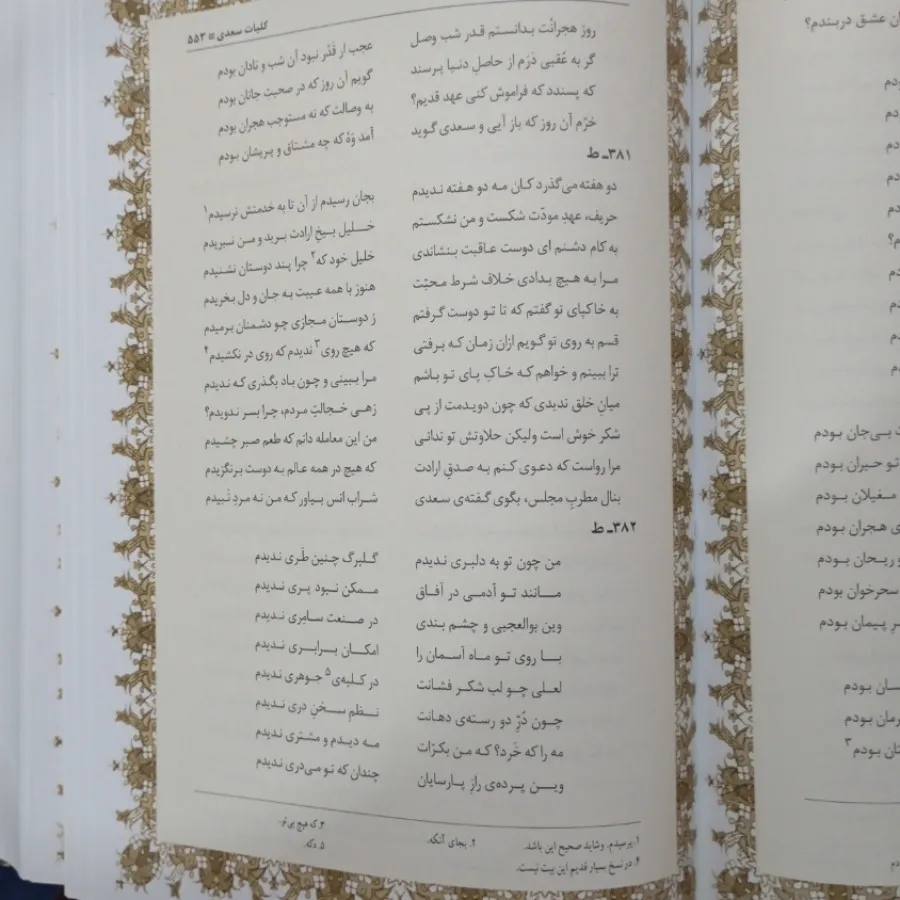 کلیات سعدی ¤ ۵۵۳
روز هجرانت بدانستم قدر شب وصل عجب ار قدر نبود آن شب و نادان بودم
گر به عُقبی دَرَم از حاصلِ دنیا پرسند گویم آن روز که در صحبتِ جانان بودم
که پسندد که فراموش کنی عهد قدیم؟ به وصالت که نه مستوجب هجران بودم
خرّم آن روز که باز آیی و سعدی گوید آمد وَه که چه مشتاق و پریشان بودم
۳۸۱ـ ط
دو هفته می‌گذرد کان مه دو هفته ندیدم بجان رسیدم از آن تا به خدمتش نرسیدم۱
حریف، عهدِ مودّت شکست و من نشکستم خلیل بیخِ ارادت برید و من نبریدم
به کام دشمنم ای دوست عاقبت بنشاندی خلیل خود که۲ چرا پند دوستان نشنیدم
مرا به هیچ بدادی خلاف شرط محبّت هنوز با همه عیبت به جان و دل بخریدم
به خاکپای تو گفتم که تا تو دوست گرفتم ز دوستان مجازی چو دشمنان برمیدم
قسم به روی تو گویم ازان زمان که برفتی که هیچ روی۳ ندیدم که روی در نکشیدم۴
ترا ببینم و خواهم که خاک پای تو باشم مرا ببینی و چون باد بگذری که ندیدم
میانِ خلق ندیدی که چون دویدمت از پی زهی خجالتِ مردم، چرا بسر ندویدم؟
شکر خوش است ولیکن حلاوتش تو ندانی من این معامله دانم که طعم صبر چشیدم
مرا رواست که دعوی کنم به صدقِ ارادت که هیچ در همه عالم به دوست برنگزیدم
بنال مطربِ مجلس، بگوی گفته‌ی سعدی شراب انس بیاور که من نه مردِ نَبیدم
۳۸۲ـ ط
من چون تو به دلبری ندیدم گلبرگ چنین طَری ندیدم
مانند تو آدمی در آفاق ممکن نبود پری ندیدم
وین بوالعجبی و چشم بندی در صنعت سامِری ندیدم
با روی تو ماه آسمان را امکان برابری ندیدم
لعلی چو لب شکر فشانت در کلبه‌ی۵ جوهری ندیدم
چون دُرِّ دو رسته‌ی دهانت نظم سخنِ دری ندیدم
مه را که خَرد؟ که من بکرّات مه دیدم و مشتری ندیدم
وین پرده‌ی رازِ پارسایان چندان که تو می‌دری ندیدم
۱. پرسیدم. وشاید صحیح این باشد. ۲. بجای آنکه. ۳. که هیچ بی‌تو.
۴. در نسخ بسیار قدیم این بیت نیست. ۵. دکه.
ن عشق دربندم؟
دم
بودم
بودم
بی‌جان بودم
تو حیران بودم
مغیلان بودم
ی هجران بودم
و ریحان بودم
سحرخوان بودم
سرِ پیمان بودم
سان بودم
رمان بودم
تان بودم۳